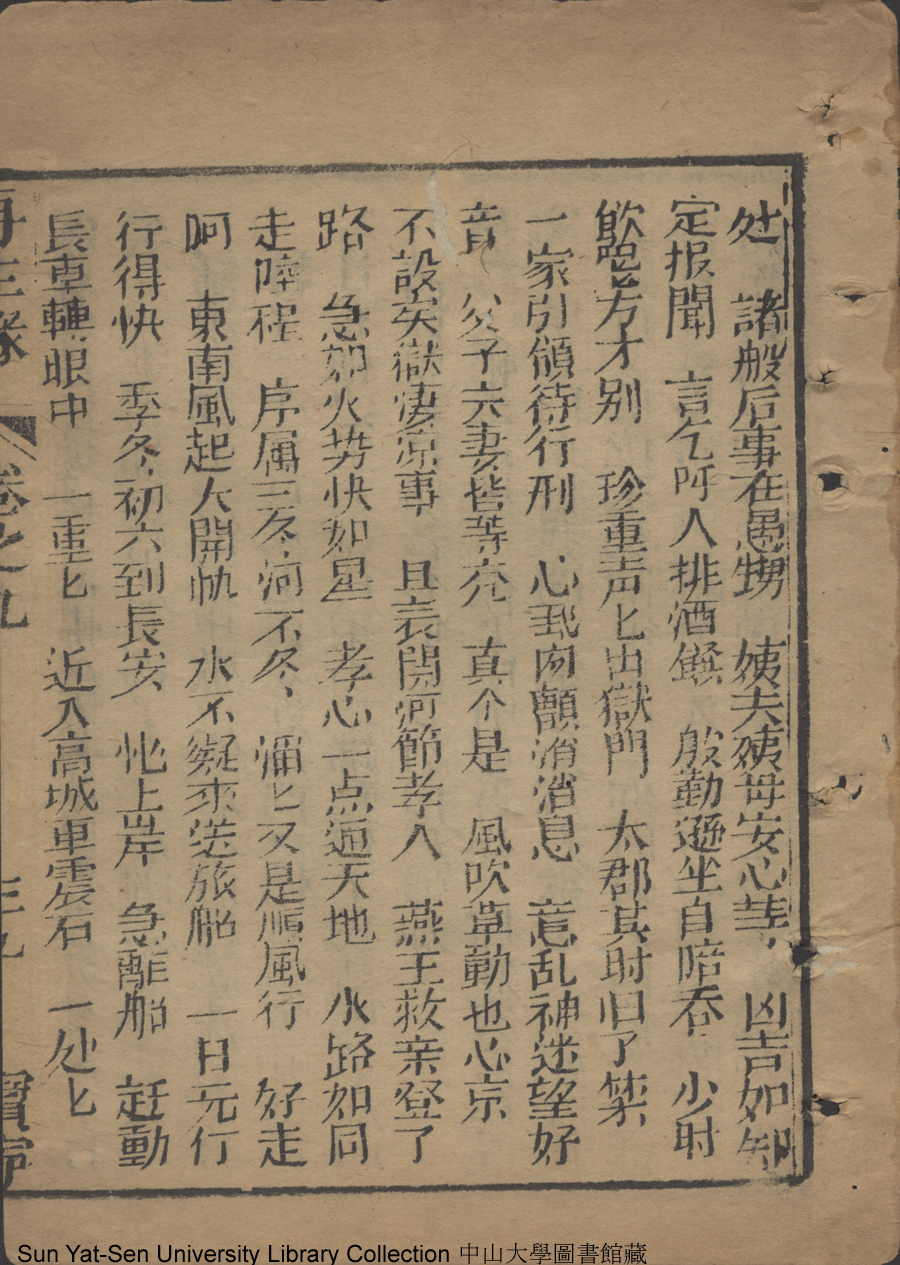 处 諸般后事在愚甥 姨夫姨母安心等 凶吉如知
定报聞 言乞 人排酒饌 般勤遜坐自陪吞 少时
飲 方才别 珍重声匕出獄門 太郡其时旧了禁
一家引領待行刑 心 消消息 意乱神迷望好
音 公子六妻皆等 真个是 風吹草動也心京
不説矣獄凄凉事 且表開河節孝人 燕王救亲登了
路 急如火势快如星 孝心一点通天地 水路如同
走陸程 序属三冬河不冬 湎匕又是順風行 好走
呵 東南風起大開帆 水不凝来送旅船 一日元行
行得快 季冬初六到長安 忙上岸 急離船 赶動
長車轉眼中 一重匕 近入高城車震石 一处匕
再生緣 卷之九 三九 寳寧
Sun Yat-Sen University Library Collection 中山大學圖書館藏